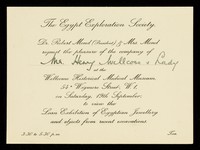 The Egypt Exploration Society.
Dr. Robert Mond (President) & Mrs. Mond
request the pleasure of the company of
Mr. Henry Wellcome & Lady
at the
Wellcome Historical Medical Museum,
54ᴬ Wigmore Street, W.1.
on Saturday, 19th September,
to view the
Loan Exhibition of Egyptian Jewellery
and objects from recent excavations
2.30 to 5.30 p.m.
Tea.